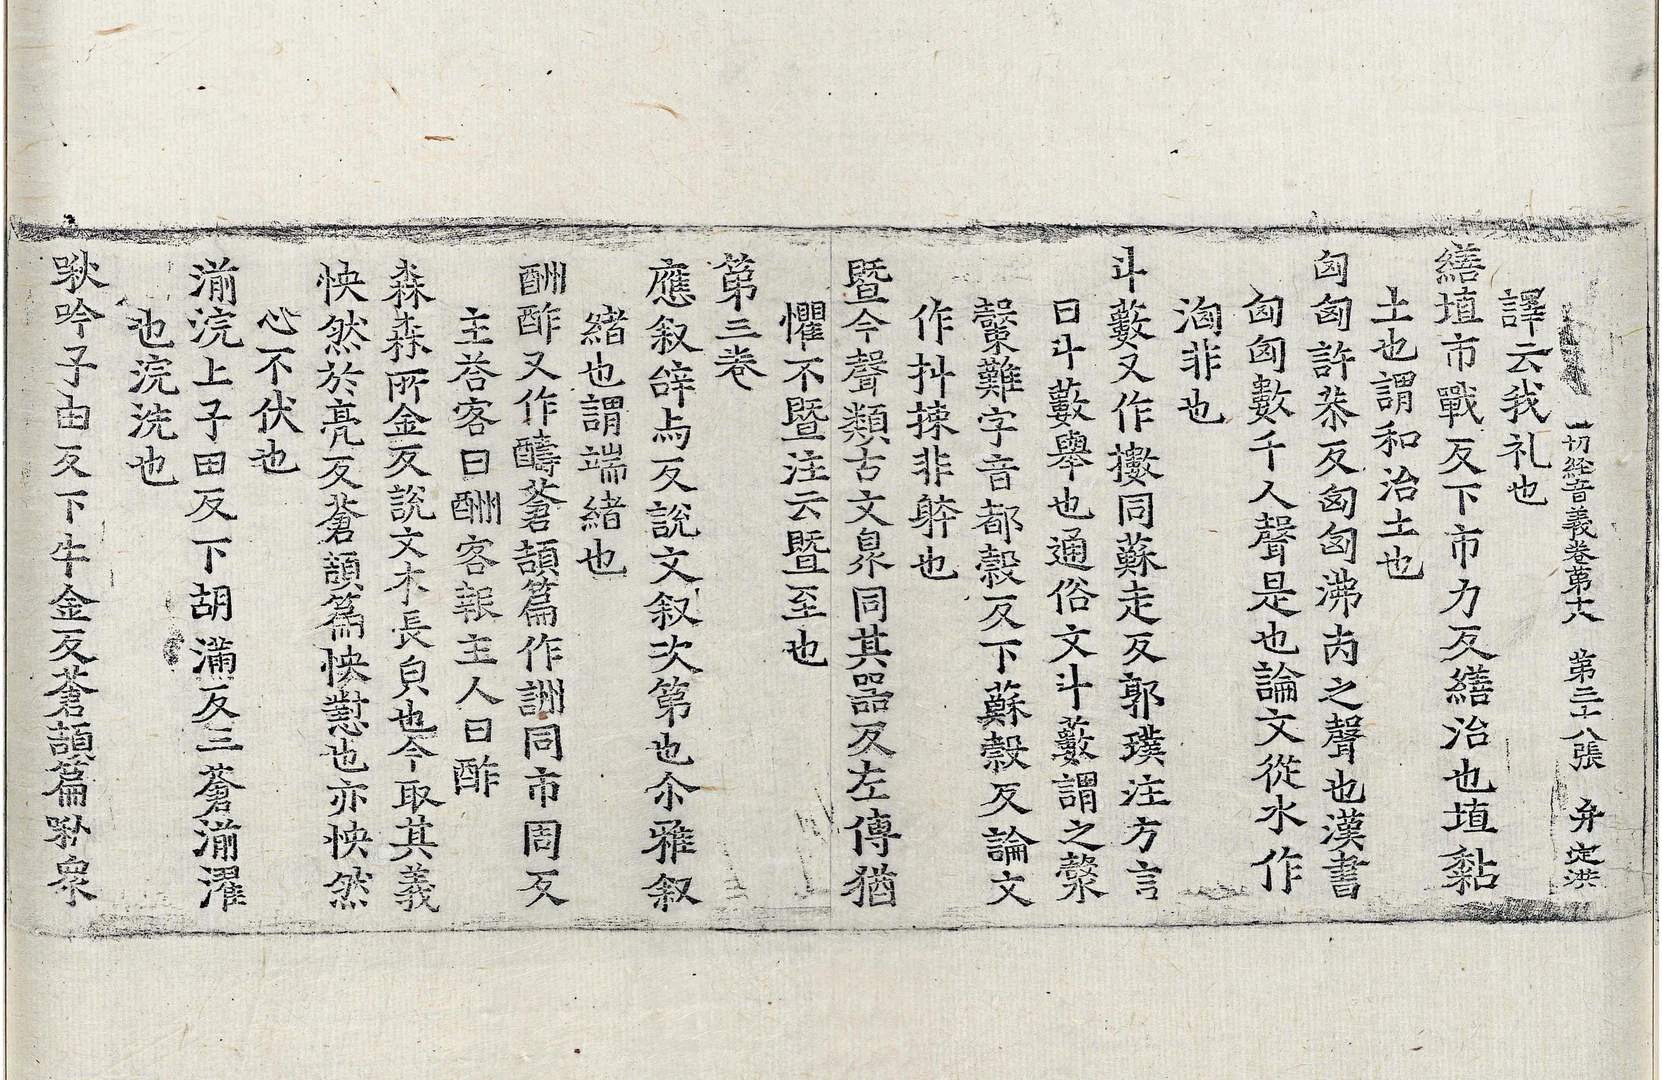 一切経音義卷第十八 第三十八張 弁 定洪
譯云我礼也
繕埴市戰反下市力反繕治也埴黏
土也謂和治土也
匈匈許恭反匈匈沸㕯之聲也漢書
匈匈數千人聲是也論文從水作
洶非也
斗藪又作擻同蘇走反郭璞注方言
曰斗藪舉也通俗文斗藪謂之𣯶
𣯶難字音都榖反下蘇榖反論文
作抖揀非躰也
暨今聲類古文臮同其器反左傳猶
懼不暨注云暨至也
第三卷
應叙辝与反說文叙次第也尒雅叙
緒也謂端緒也
酬酢又作醻蒼頡篇作詶同市周反
主荅客曰酬客報主人曰酢
森森所金反說文木長皃也今取其義
怏然於亮反蒼頡篇怏懟也亦怏然
心不伏也
湔浣上子田反下胡滿反三蒼湔濯
也浣洗也
啾吟子由反下牛金反蒼頡篇啾衆